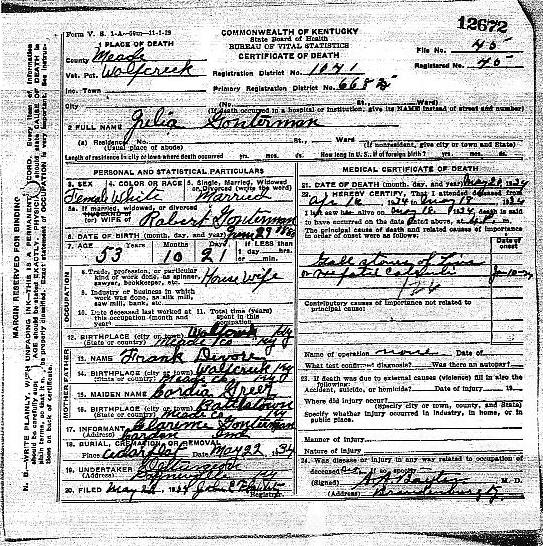 Form V. S. 1-A
COMMONWEALTH OF KENTUCKY
State Board of Health
BUREAU OF VITAL STATISTICS
CERTIFICATE OF DEATH
12672
File No. 45
Registered No. 45
1 PLACE OF DEATH
County Meade
Vot. Pct. Wolfcreek
Registration District No. 1041
Inc. Town
Primary Registration District No.
City (No. St., Ward)
(If death occurred in a hospital or institution, give its NAME instead of street and number)
2 FULL NAME Julia Gonterman
(a) Residence. No. St., Ward
(Usual place of abode) (If nonresident, give city or town and State)
Length of residence in city or town where death occurred yrs. mos. ds. How long in U. S., if of foreign birth? yrs. mos. ds.
PERSONAL AND STATISTICAL PARTICULARS
3. SEX 4. COLOR OR RACE 5. Single, Married, Widowed or Divorced (write the word)
Female White Married
5a. If married, widowed, or divorced
HUSBAND of
(or) WIFE of Robert Gonterman
6. DATE OF BIRTH (month, day, and year) June 29
7. AGE Years Months Days If LESS than
53 10 21 1 day hrs.
or min.
OCCUPATION
8. Trade, profession, or particular
kind of work done, as spinner,
sawyer, bookkeeper, etc. House wife
9. Industry or business in which
work was done, as silk mill,
saw mill, bank, etc.
10. Date deceased last worked at
this occupation (month and
year)
11. Total time (years)
spent in this
occupation
12. BIRTHPLACE (city or town) Wolfcreek Ky
(State or country) Meade Co Ky
MOTHER FATHER
13. NAME Frank Devore
14. BIRTHPLACE (city or town) Wolfcreek Ky
(State or country) Meade Co Ky
15. MAIDEN NAME Cordia Greer
16. BIRTHPLACE (city or town)
(State or country) Meade Co Ky
17. INFORMANT Clarence Gonterman
(Address) Ind
18. BURIAL, CREMATION, OR REMOVAL
Place Cedar flat Date May 22 1934
19. UNDERTAKER
(Address) Ky
20. FILED May 22, 1934 John C
Registrar.
MEDICAL CERTIFICATE OF DEATH
21. DATE OF DEATH (month, day, and year) May 20 1934
22. I HEREBY CERTIFY, That I attended deceased from
Apr 16 1934 to May 18 1934
I last saw h alive on May 18 1934 death is said
to have occurred on the date stated above, at m.
The principal cause of death and related causes of importance
in order of onset were as follows:
Date of
onset
Gall stones of Liver
or hepatic Calculi
Contributory causes of importance not related to
principal cause:
Name of operation none Date of
What test confirmed diagnosis? Was there an autopsy?
23. If death was due to external causes (violence) fill in also the
following:
Accident, suicide, or homicide? Date of injury 19
Where did injury occur?
(Specify city or town, county, and State)
Specify whether injury occurred in industry, in home, or in
public place.
Manner of injury
Nature of injury
24. Was disease or injury in any way related to occupation of
deceased? If so specify
(Signed) M. D.
(Address) Brandenburg Ky
MARGIN RESERVED FOR BINDING